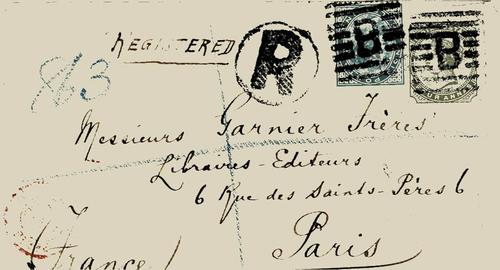 REGISTERED
R
B
B
Messieurs Garnier Frères
Libraires-Editeurs
6 Rue des Saints-Pères 6
Paris
(France)